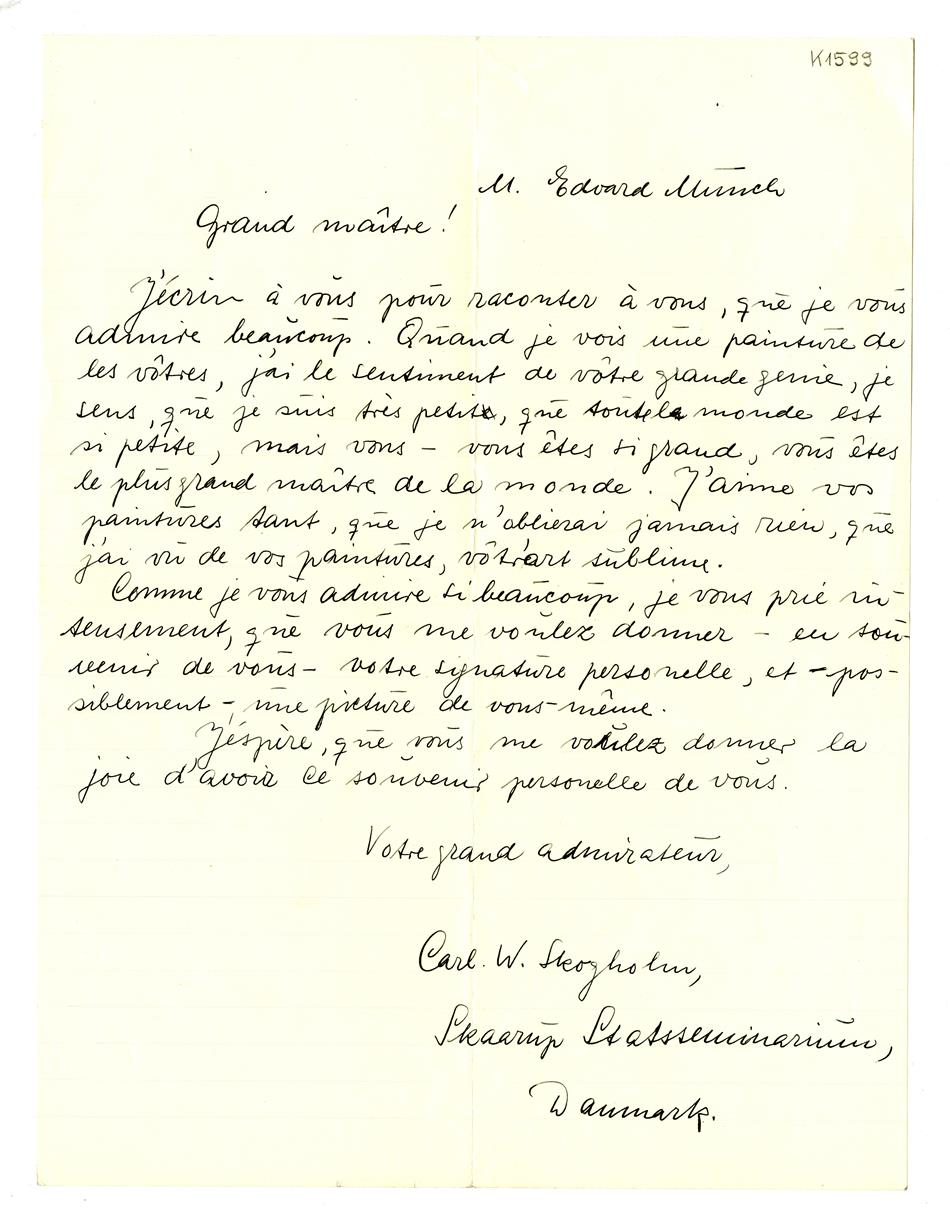 K1599
M. Edvard Munch
Grand maître!
J'écris à vous pour raconter à vous, que je vous
admire beaucoup. Quand je vois une painture de
les vôtres, j'ai le sentiment de vôtre grande genie, je
sens, que je suis très petite, que toute la monde est
si petite, mais vous – vous êtes si grand, vous êtes
le plus grand maître de la monde. J'aime vos
paintures tant, que je n'oblierai jamais rien, que
j'ai vu de vos paintures, vôtr'art sublime.
Comme je vous admire si beaucoup, je vous prie in-
tensement, que vous me voulez donner – en sou-
venir de vous – votre signature personelle, et – pos-
siblement –, une picture de vous-même.
J'éspère, que vous me voulez donner la
joie d'avoir ce souvenir personelle de vous.
Votre grand admirateur,
Carl. W. Skogholm,
Skaarup Statsseminarium,
Danmark.